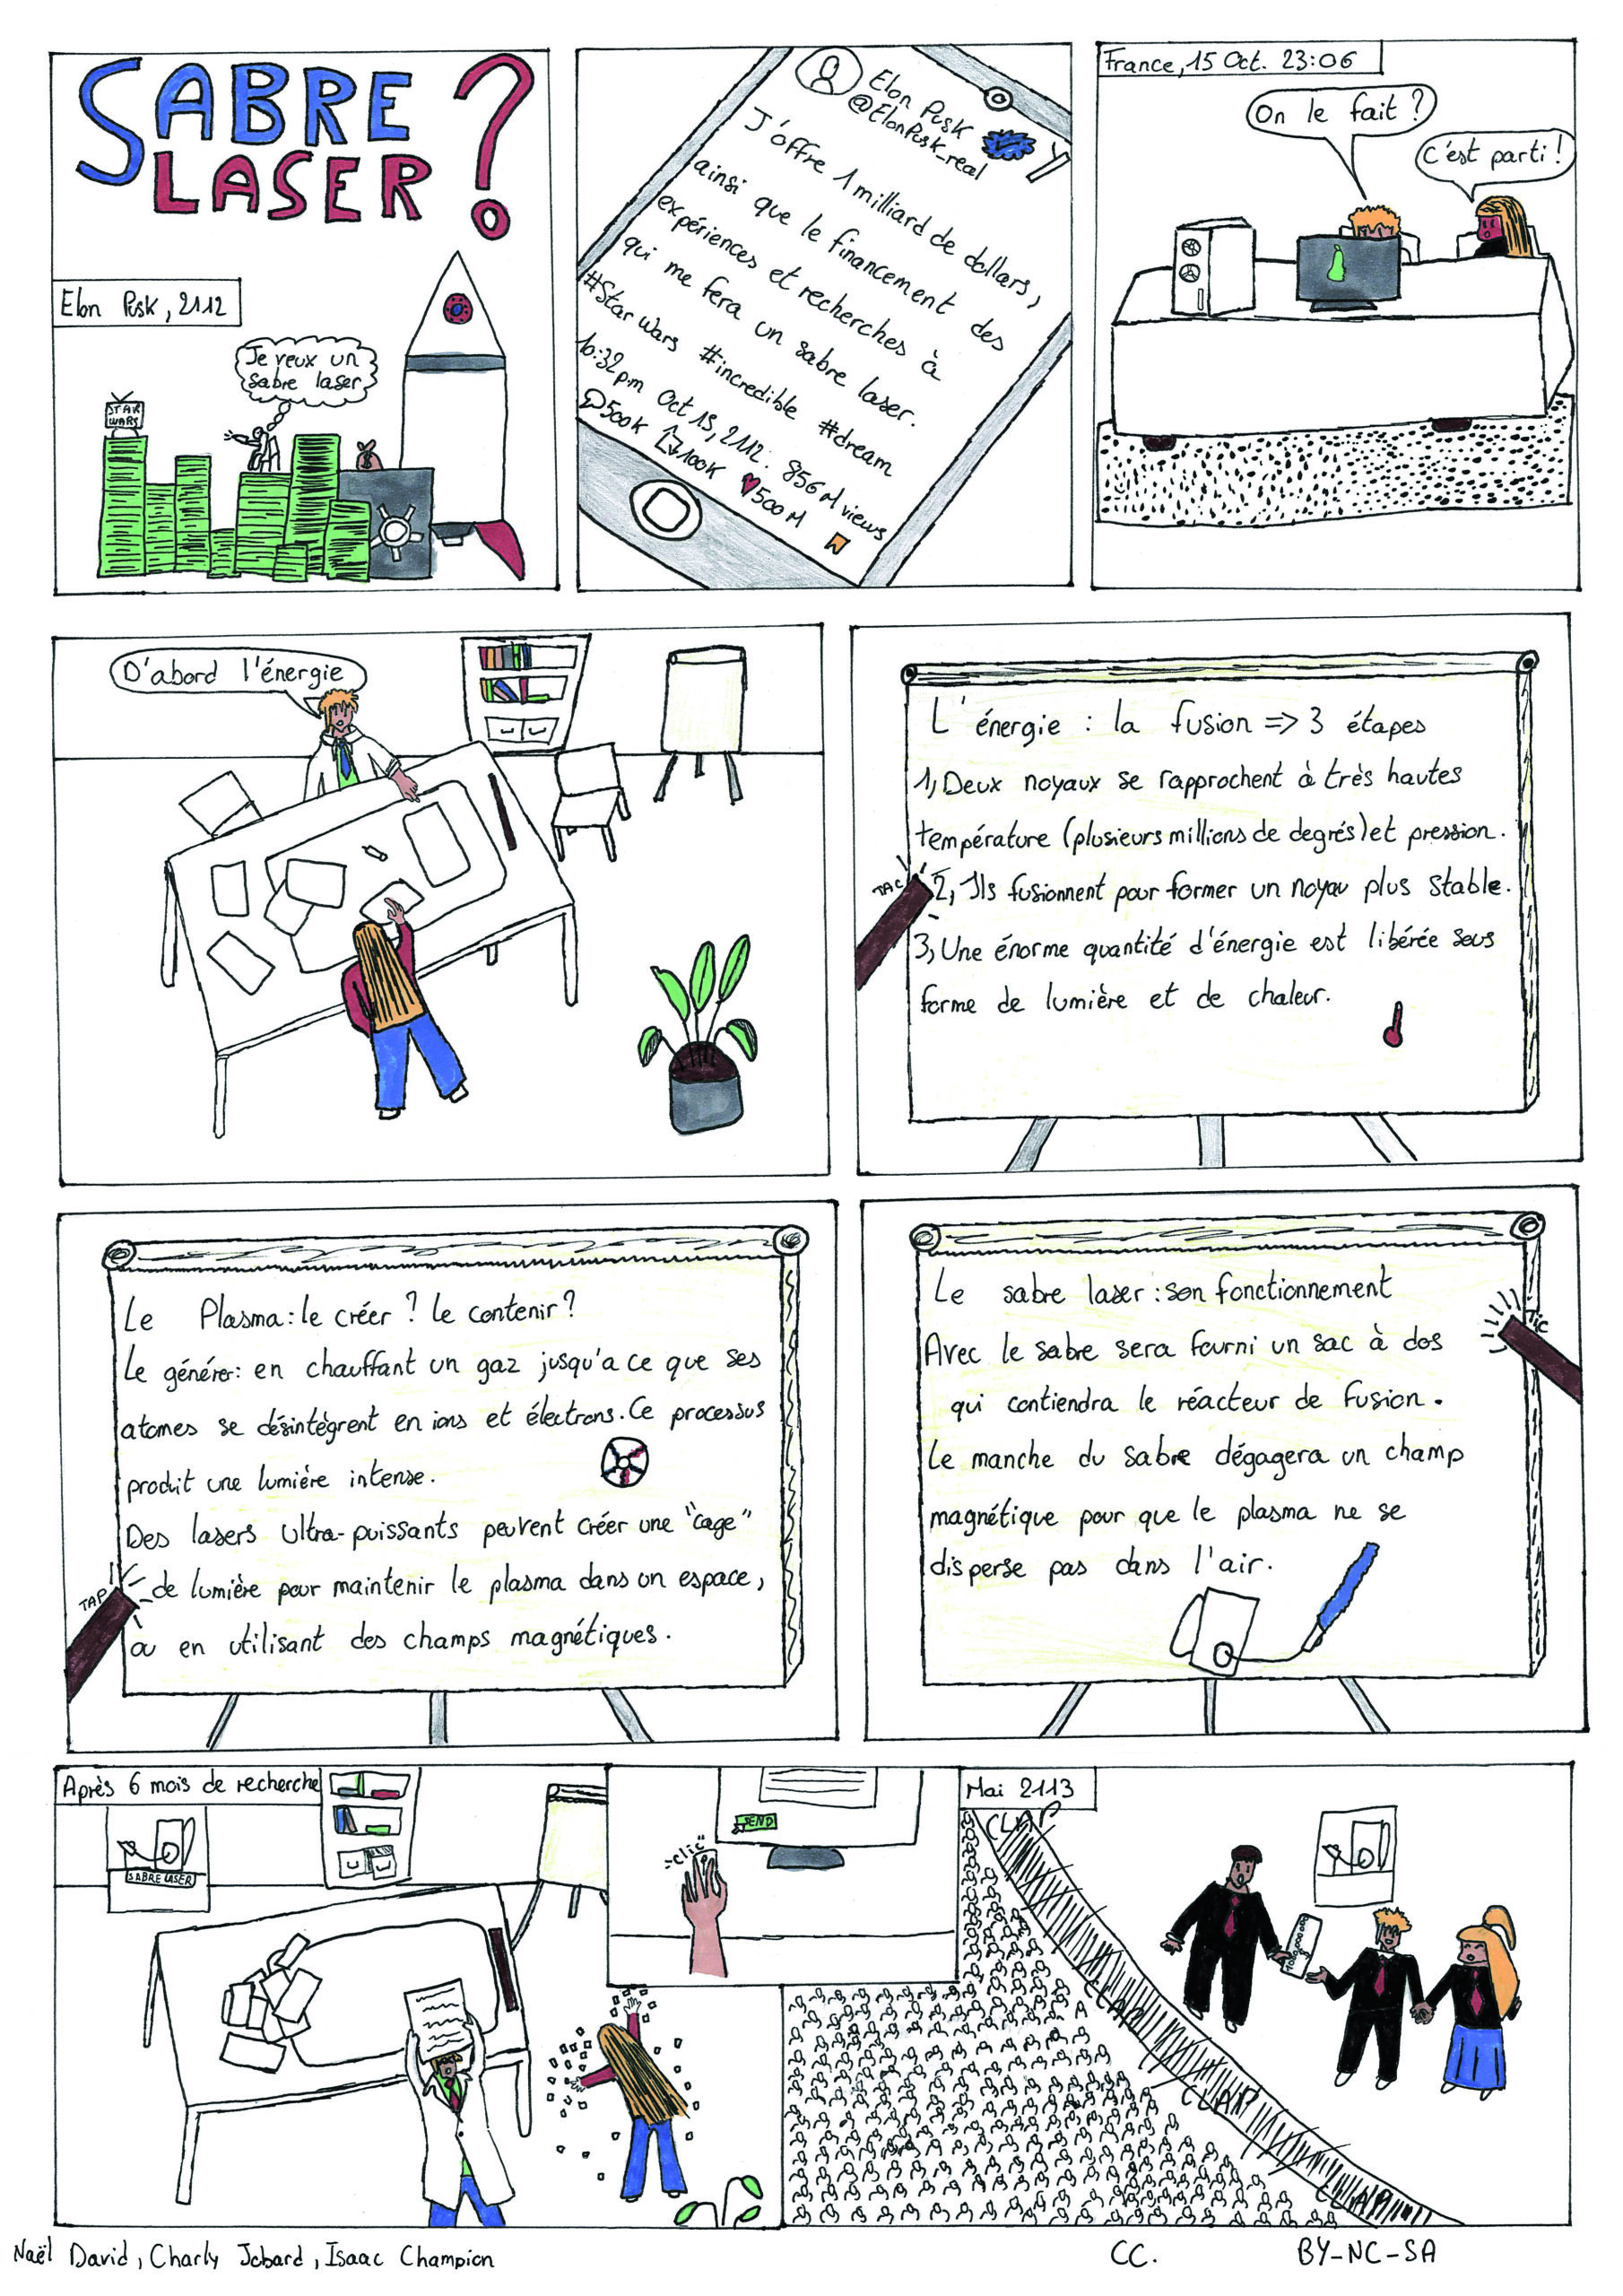 SABRE
LASER ?
Elon Pusk, 2112
Je veux un
sabre laser
STAR
WARS
Elon Pusk
@ElonPusk_real
J'offre 1 milliard de dollars,
ainsi que le financement des
expériences et recherches à
qui me fera un sabre laser.
#Star Wars #incredible #dream
10:32 p.m Oct 15, 2112. 856 M views
500K 100K 500 M
France, 15 Oct. 23:06
On le fait ?
C'est parti !
D'abord l'énergie
L'énergie : la fusion => 3 étapes
1, Deux noyaux se rapprochent à très hautes
température (plusieurs millions de degrés) et pression.
TAC
2, Ils fusionnent pour former un noyau plus stable.
3, Une énorme quantité d'énergie est libérée sous
forme de lumière et de chaleur.
Le Plasma : le créer ? le contenir ?
Le générer : en chauffant un gaz jusqu'a ce que ses
atomes se désintègrent en ions et électrons. Ce processus
produit une lumière intense.
Des lasers ultra-puissants peuvent créer une "cage"
TAP
de lumière pour maintenir le plasma dans un espace,
ou en utilisant des champs magnétiques.
Le sabre laser : son fonctionnement
TIC
Avec le sabre sera fourni un sac à dos
qui contiendra le réacteur de fusion.
Le manche du sabre dégagera un champ
magnétique pour que le plasma ne se
disperse pas dans l'air.
Après 6 mois de recherche
SABRE LASER
SEND
"clic"
Mai 2113
CLAP
CLAP
CLAP
CLAP
Naël David, Charly Jobard, Isaac Champion
CC. BY-NC-SA